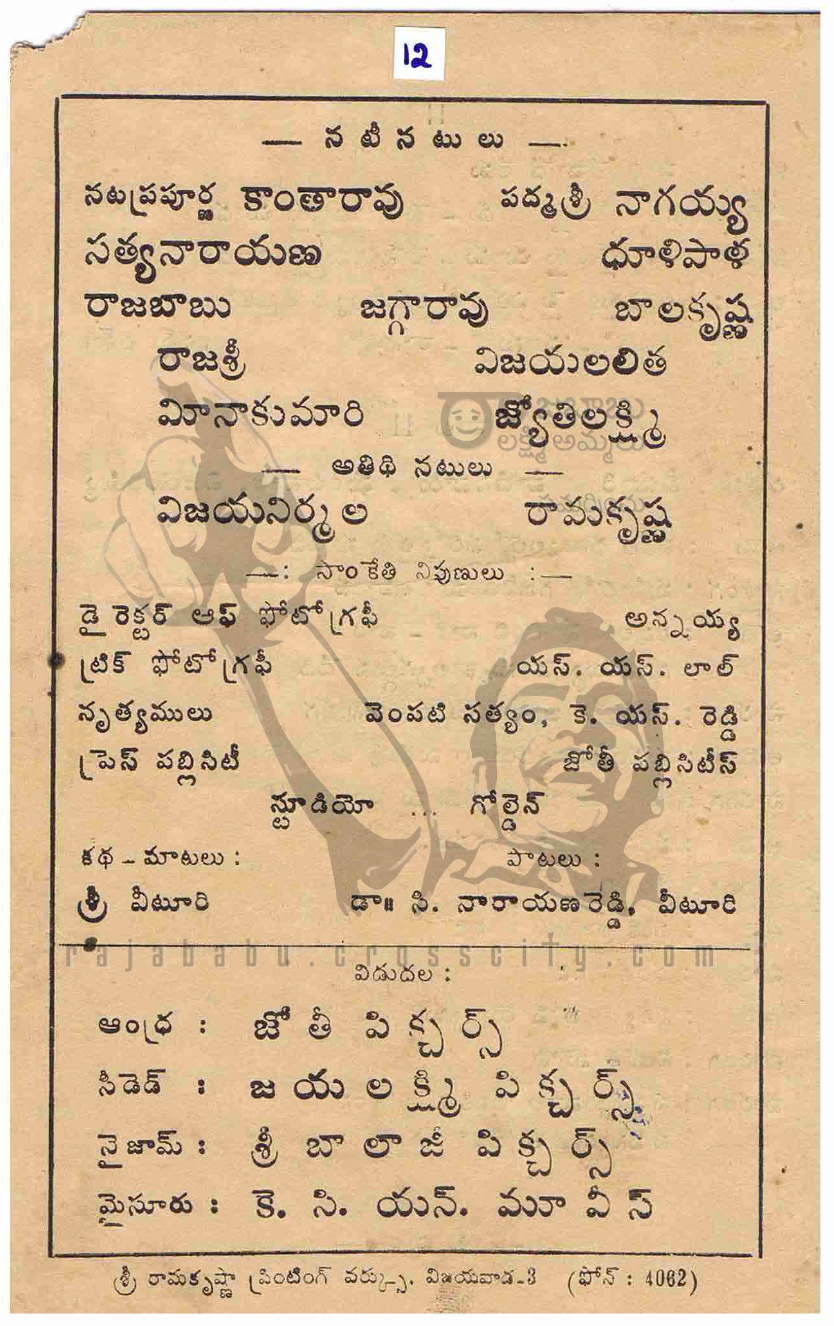 12
— నటీనటులు —
నటప్రపూర్ణ కాంతారావు పద్మశ్రీ నాగయ్య
సత్యనారాయణ ధూళిపాళ
రాజబాబు జగ్గారావు బాలకృష్ణ
రాజశ్రీ విజయలలిత
మీనాకుమారి జ్యోతిలక్ష్మి
— అతిథి నటులు —
విజయనిర్మల రామకృష్ణ
—: సాంకేతి నిపుణులు :—
డైరెక్టర్ ఆఫ్ ఫోటోగ్రఫీ అన్నయ్య
ట్రిక్ ఫోటోగ్రఫీ యస్. యస్. లాల్
నృత్యములు వెంపటి సత్యం, కె. యస్. రెడ్డి
ప్రెస్ పబ్లిసిటీ జోతీ పబ్లిసిటీస్
స్టూడియో ... గోల్డెన్
కథ - మాటలు : పాటలు :
శ్రీ వీటూరి డా॥ సి. నారాయణరెడ్డి, వీటూరి
rajababu.crosscity.com
విడుదల :
ఆంధ్ర : జోతీ పిక్చర్స్
సీడెడ్ : జయలక్ష్మి పిక్చర్స్
నైజామ్ : శ్రీ బాలాజీ పిక్చర్స్
మైసూరు : కె. సి. యన్. మూవీస్
శ్రీ రామకృష్ణా ప్రింటింగ్ వర్క్సు, విజయవాడ-3 (ఫోన్ : 4062)